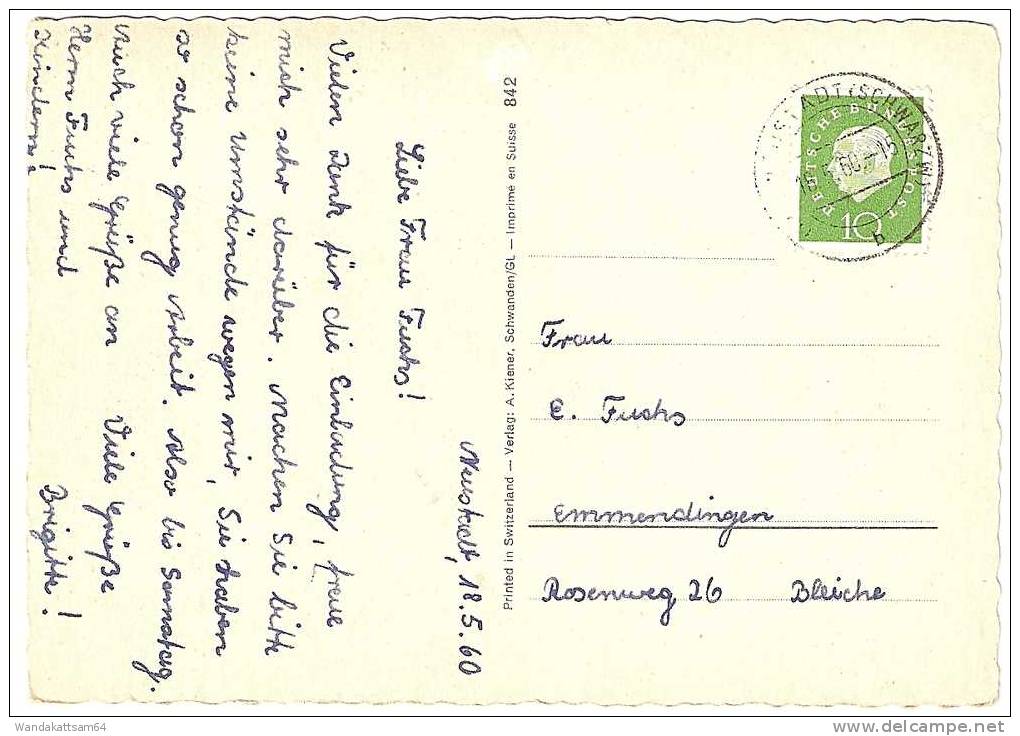 Neustadt, 18.5.60
Liebe Frau Fuchs!
Vielen Dank für die Einladung, freue
mich sehr darüber. Machen Sie bitte
keine Umstände wegen mir, Sie haben
so schon genug Arbeit. Also bis Samstag.
Auch viele Grüße an Viele Grüße
Herrn Fuchs und Brigitte!
Kindern!
Printed in Switzerland — Verlag: A. Kiener, Schwanden/GL — Imprime en Suisse 842
STADT (SCHWARZW)
60.-15
B
DEUTSCHE BUNDESPOST
10
Frau
E. Fuchs
Emmendingen
Rosenweg 26 Bleiche
Wandakattsam64
delcampe.net